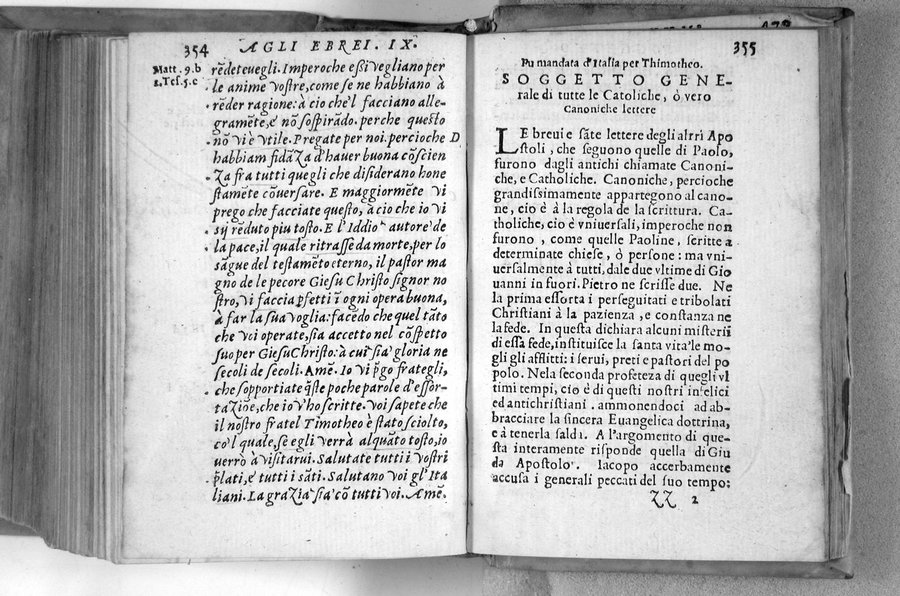 354 AGLI EBREI. IX.
Matt. 9.b
1.Tes.5.c
rēdeteuegli. Imperoche eßi vegliano per
le anime vostre, come se ne habbiano à
rēder ragione: à cio che'l facciano alle-
gramēte, e' nō sospirādo. perche questo
nō vi è vtile. Pregate per noi. percioche D
habbiam fidāza d'hauer buona cōscien
za fra tutti quegli che disiderano hone
stamēte cōuersare. E maggiormēte vi
prego che facciate questo, à cio che io vi
sij reduto piu tosto. E l'Iddio autore de
la pace, il quale ritrasse da morte, per lo
sāgue del testamēto eterno, il pastor ma
gno de le pecore Giesu Christo signor no
stro, vi faccia pfetti ī ogni opera buona,
à far la sua voglia: facēdo che quel tāto
che voi operate, sia accetto nel cōspetto
suo per Giesu Christo: à cui sia gloria ne
secoli de secoli. Amē. Io vi pgo frategli,
che sopportiate q̄ste poche parole d'essor-
tazione, che io v'ho scritte. Voi sapete che
il nostro fratel Timotheo è stato sciolto,
co'l quale, se egli verrà alquāto tosto, io
verrò à visitarui. Salutate tutti i vostri
plati, e tutti i sāti. Salutano voi gl'Ita
liani. La grazia sia cō tutti voi. Amē.
355
Fu mandata d'Italia per Thimotheo.
SOGGETTO GENE-
rale di tutte le Catoliche, ò vero
Canoniche lettere
LE breui e sāte lettere degli altri Apo
stoli, che seguono quelle di Paolo,
furono dagli antichi chiamate Canoni-
che, e Catholiche. Canoniche, percioche
grandissimamente appartegono al cano-
ne, cio è à la regola de la scrittura. Ca-
tholiche, cio è vniuersali, imperoche non
furono, come quelle Paoline, scritte a
determinate chiese, ò persone: ma vni-
uersalmente à tutti, dale due vltime di Gio
uanni in fuori. Pietro ne scrisse due. Ne
la prima essorta i perseguitati e tribolati
Christiani à la pazienza, e constanza ne
la fede. In questa dichiara alcuni misterii
di essa fede, instituisce la santa vita le mo-
gli gli afflitti: i serui, preti e pastori del po
polo. Nela seconda profeteza di quegli vl
timi tempi, cio è di questi nostri infelici
ed antichristiani. ammonendoci ad ab-
bracciare la sincera Euangelica dottrina,
e à tenerla salda. A l'argomento di que-
sta interamente risponde quella di Giu
da Apostolo. Iacopo accerbamente
accusa i generali peccati del suo tempo:
ZZ 2